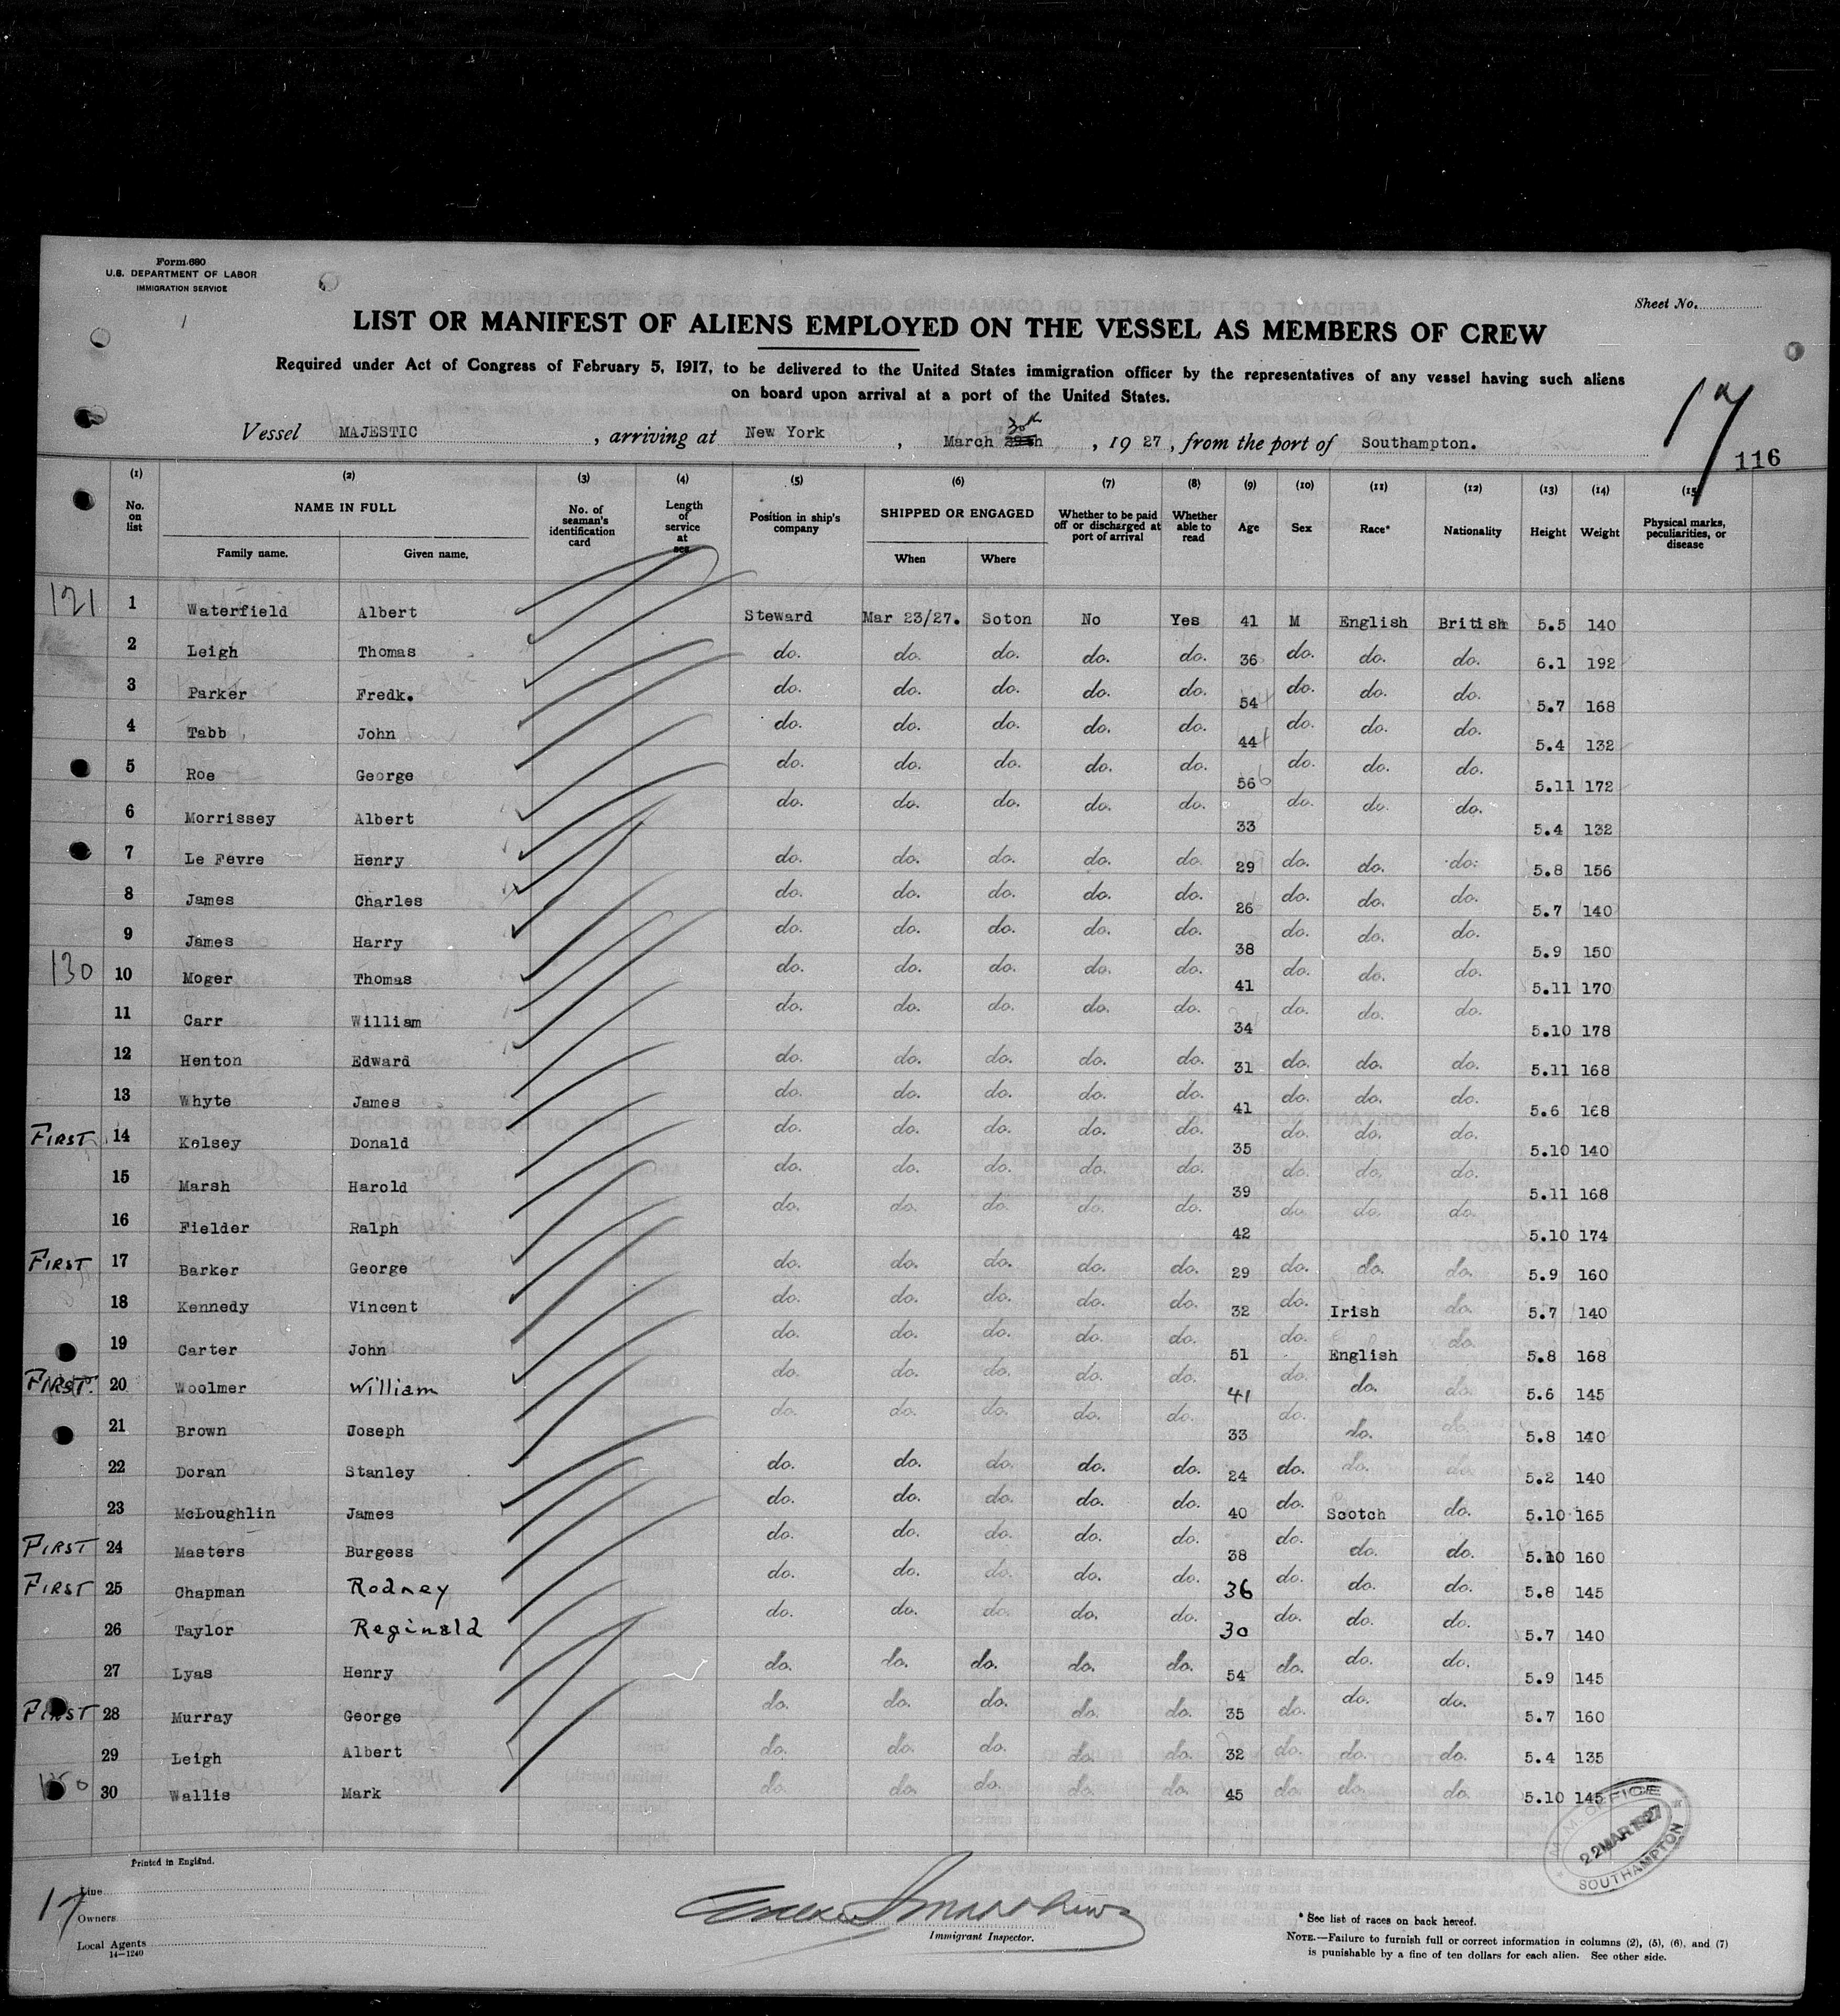 Form 680
U.S. DEPARTMENT OF LABOR
IMMIGRATION SERVICE
Sheet No.
LIST OR MANIFEST OF ALIENS EMPLOYED ON THE VESSEL AS MEMBERS OF CREW
Required under Act of Congress of February 5, 1917, to be delivered to the United States immigration officer by the representatives of any vessel having such aliens
on board upon arrival at a port of the United States.
17
30th
Vessel MAJESTIC, arriving at New York, March 29th, 1927, from the port of Southampton.
116
(1) (2) (3) (4) (5) (6) (7) (8) (9) (10) (11) (12) (13) (14) (15)
No. on list NAME IN FULL Family name. Given name. No. of seaman's identification card Length of service at sea Position in ship's company SHIPPED OR ENGAGED When Where Whether to be paid off or discharged at port of arrival Whether able to read Age Sex Race* Nationality Height Weight Physical marks, peculiarities, or disease
121 1 Waterfield Albert Steward Mar 23/27. Soton No Yes 41 M English British 5.5 140
2 Leigh Thomas do. do. do. do. do. 36 do. do. do. 6.1 192
3 Parker Fredk. do. do. do. do. do. 54 do. do. do. 5.7 168
4 Tabb John do. do. do. do. do. 44 do. do. do. 5.4 132
5 Roe George do. do. do. do. do. 56 do. do. do. 5.11 172
6 Morrissey Albert do. do. do. do. do. 33 do. do. do. 5.4 132
7 Le Fevre Henry do. do. do. do. do. 29 do. do. do. 5.8 156
8 James Charles do. do. do. do. do. 26 do. do. do. 5.7 140
9 James Harry do. do. do. do. do. 38 do. do. do. 5.9 150
130 10 Moger Thomas do. do. do. do. do. 41 do. do. do. 5.11 170
11 Carr William do. do. do. do. do. 34 do. do. do. 5.10 178
12 Henton Edward do. do. do. do. do. 31 do. do. do. 5.11 168
13 Whyte James do. do. do. do. do. 41 do. do. do. 5.6 168
FIRST 14 Kelsey Donald do. do. do. do. do. 35 do. do. do. 5.10 140
15 Marsh Harold do. do. do. do. do. 39 do. do. do. 5.11 168
16 Fielder Ralph do. do. do. do. do. 42 do. do. do. 5.10 174
FIRST 17 Barker George do. do. do. do. do. 29 do. do. do. 5.9 160
18 Kennedy Vincent do. do. do. do. do. 32 do. Irish do. 5.7 140
19 Carter John do. do. do. do. do. 51 do. English do. 5.8 168
FIRST. 20 Woolmer William do. do. do. do. do. 41 do. do. do. 5.6 145
21 Brown Joseph do. do. do. do. do. 33 do. do. do. 5.8 140
22 Doran Stanley do. do. do. do. do. 24 do. do. do. 5.2 140
23 McLoughlin James do. do. do. do. do. 40 do. Scotch do. 5.10 165
FIRST 24 Masters Burgess do. do. do. do. do. 38 do. do. do. 5.10 160
FIRST 25 Chapman Rodney do. do. do. do. do. 36 do. do. do. 5.8 145
26 Taylor Reginald do. do. do. do. do. 30 do. do. do. 5.7 140
27 Lyas Henry do. do. do. do. do. 54 do. do. do. 5.9 145
FIRST 28 Murray George do. do. do. do. do. 35 do. do. do. 5.7 160
29 Leigh Albert do. do. do. do. do. 32 do. do. do. 5.4 135
150 30 Wallis Mark do. do. do. do. do. 45 do. do. do. 5.10 145
OFFICE
22 MAR 1927
SOUTHAMPTON
Printed in England.
17
Line
Owners
Local Agents
14—1240
Immigrant Inspector.
* See list of races on back hereof.
NOTE.—Failure to furnish full or correct information in columns (2), (5), (6), and (7)
is punishable by a fine of ten dollars for each alien. See other side.